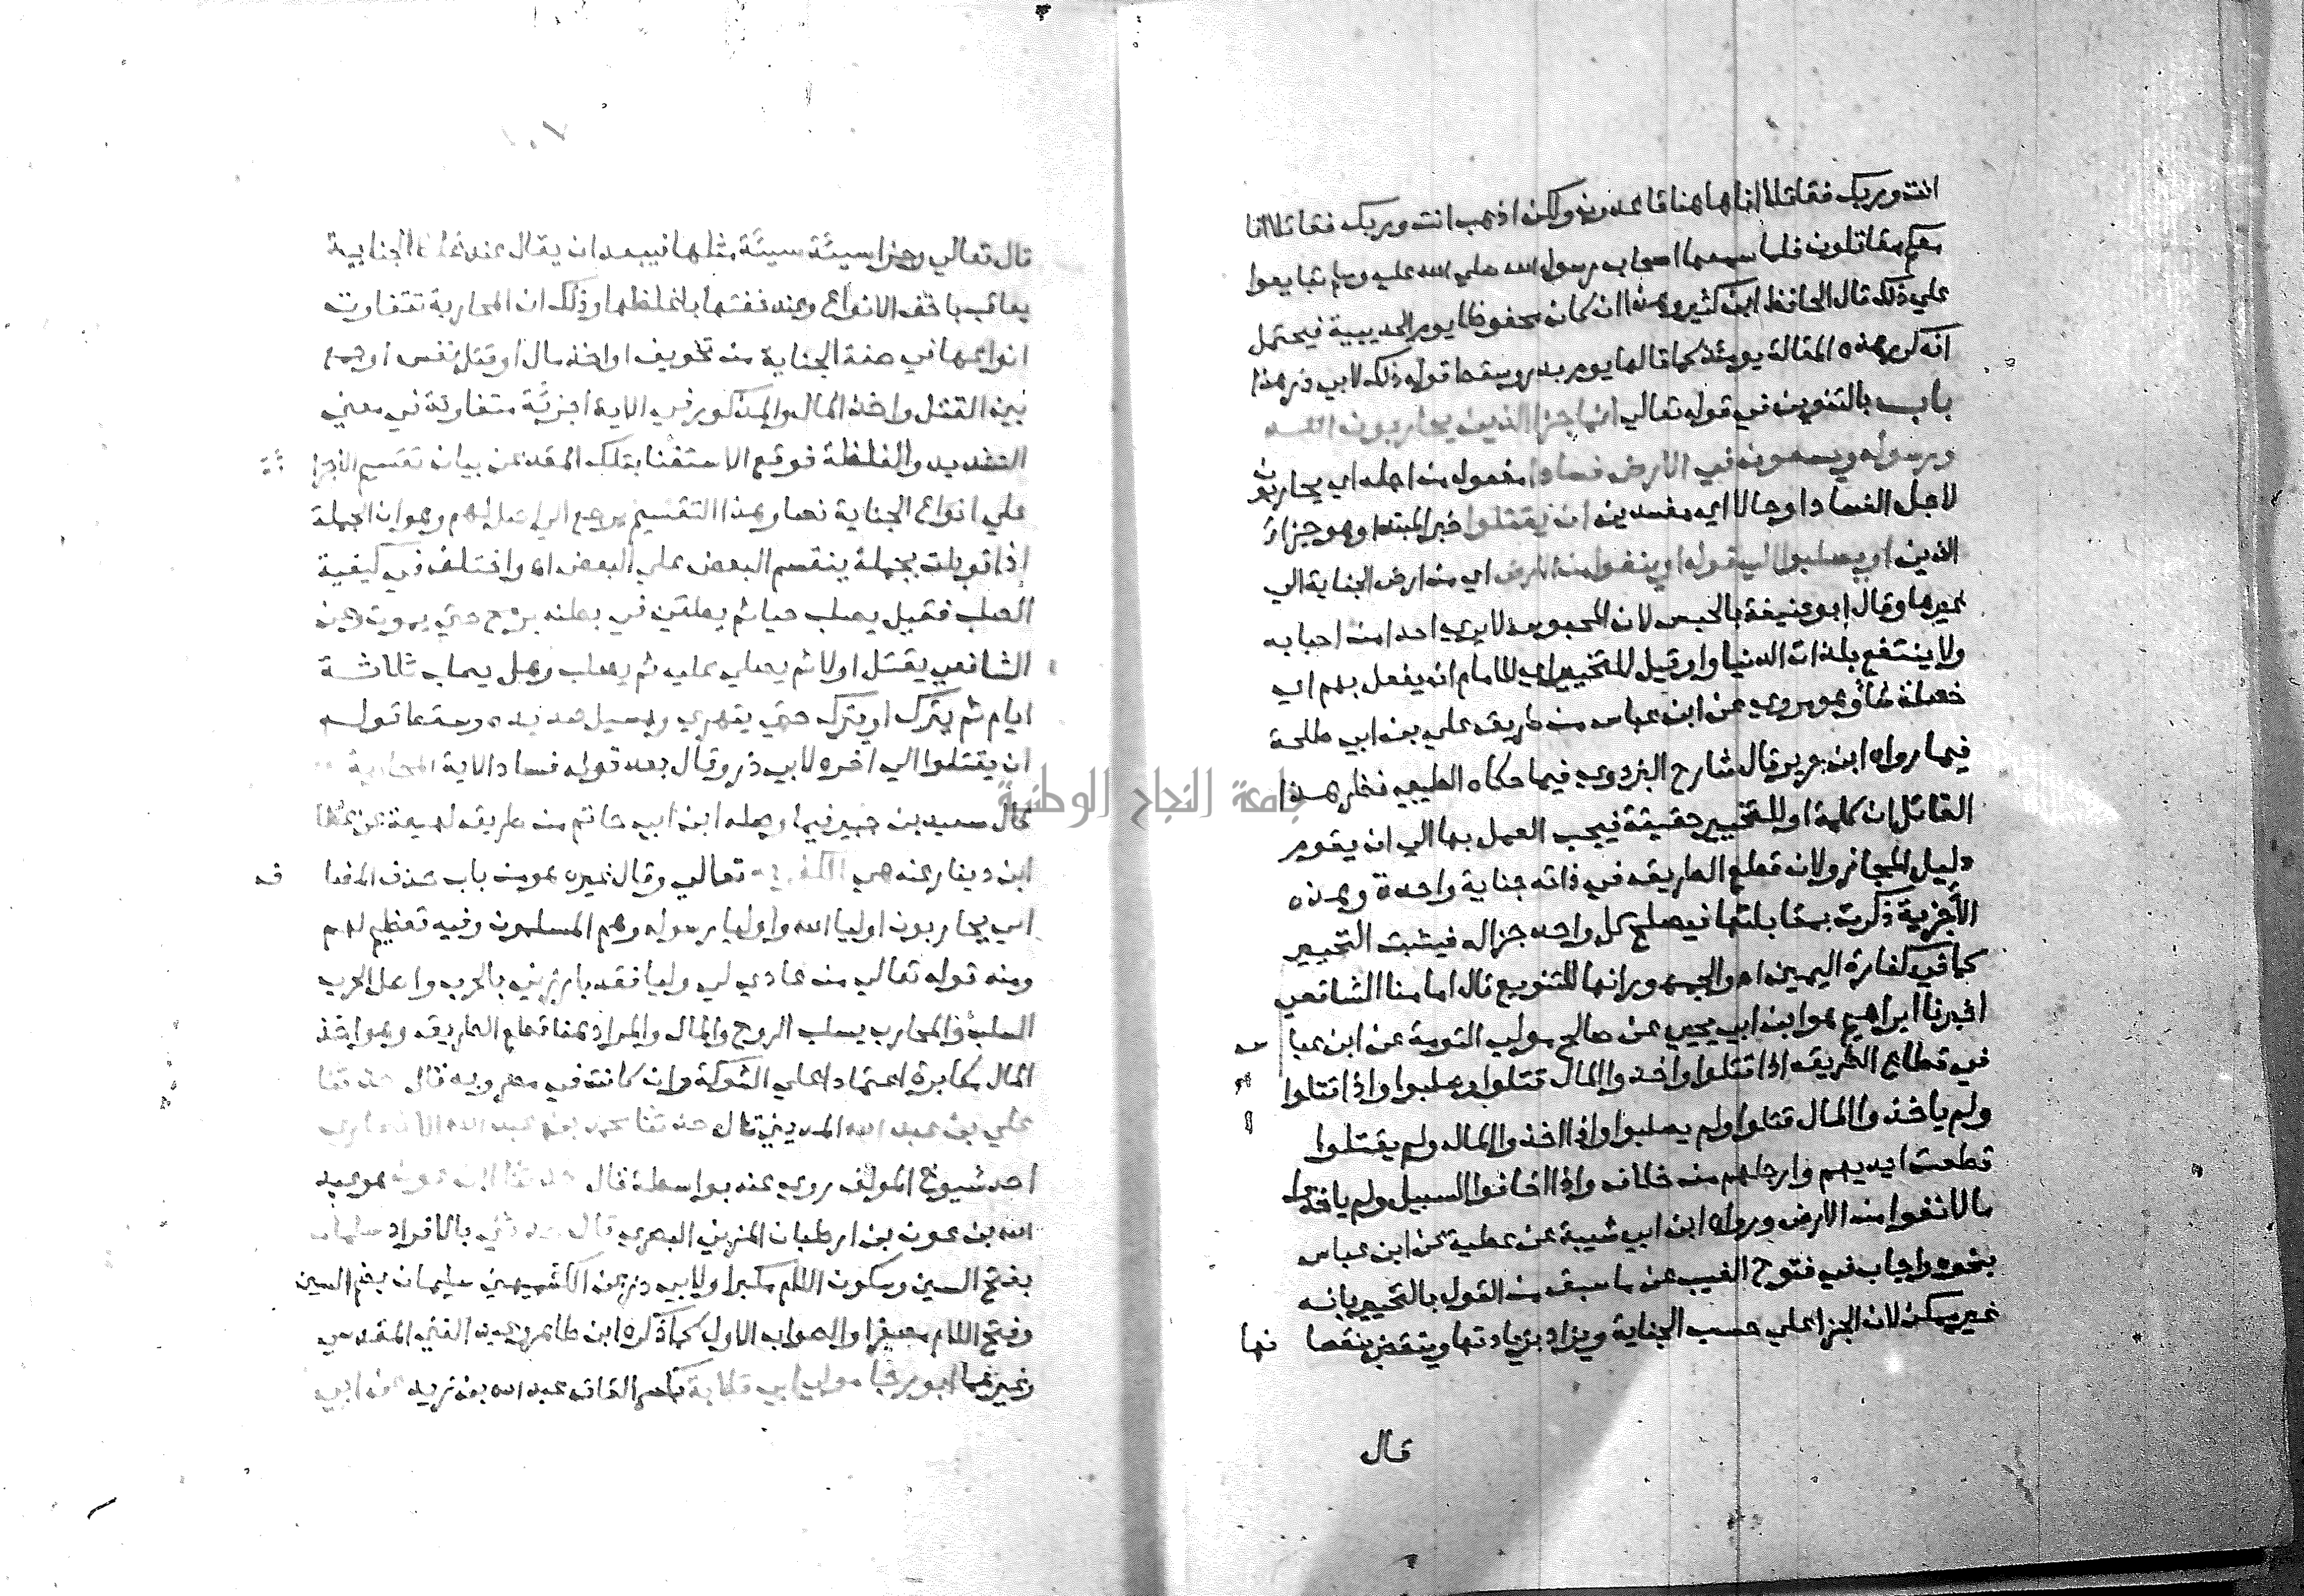 انت وربك فقاتلا انا هاهنا قاعدون ولكن اذهب انت وربك فقاتلا انا
معكم مقاتلون فلما سمعها اصحاب رسول الله صلي الله عليه وسلم تبايعوا
علي ذلك قال الحافظ ابن كثير وهذا ان كان محفوظا يوم الحديبية فيحتمل
انه كرر هذه المقالة يومئذ كما قالها يوم بدر وسقط قوله ذلك لابي ذر هذا
باب بالتنوين في قوله تعالي انما جزا الذين يحاربون الله
ورسوله ويسعون في الارض فسادا مفعول من اجله اي يحاربون
لاجل الفساد او حالا اي مفسدين ان يقتلوا خبر المبتدا وهو جزاؤ
الذين او يصلبوا الي قوله او ينفوا من الارض اي من ارض الجناية الي
غيرها وقال ابو حنيفة بالحبس لان المحبوس لا يري احدا من احبابه
ولا ينتفع بلذات الدنيا واو قيل للتخيير اي للامام ان يفعل بهم اي
خصلة شأ وهو مروي عن ابن عباس من طريق علي بن ابي طلحة
فيما رواه ابن جرير قال شارح البزدوي فيما حكاه الطيبي فنظر هذا
القائل ان كلمة او للتخيير حقيقة فيجب العمل بها الي ان يقوم
دليل المجاز ولان قطع الطريق في ذاته جناية واحدة وهذه
الأجزية ذكرت بمقابلتها فيصلح كل واحد جزا له فيثبت التخيير
كما في كفارة اليمين اه والجمهور انها للتنويع قال امامنا الشافعي
اخبرنا ابراهيم هو ابن ابي يحيي عن صالح مولي التومة عن ابن عباس
في قطاع الطريق اذا قتلوا واخذوا المال قتلوا وصلبوا واذا قتلوا
ولم ياخذوا المال قتلوا ولم يصلبوا واذا اخذوا المال ولم يقتلوا
قطعت ايديهم وارجلهم من خلاف واذا اخافوا السبيل ولم ياخذوا
مالا نفوا من الارض ورواه ابن ابي شيبة عن عطية عن ابن عباس
بنحوه واجاب في فتوح الغيب عن ما سبق من القول بالتخيير بانه
غير ممكن لان الجزا علي حسب الجناية ويزاد بزيادتها وينقص بنقصا نها
قال
١٠٧
قال تعالي وجزا سيئة سيئة مثلها فيبعد ان يقال عند غلظ الجناية
يعاقب باخف الانواع وعند خفتها باغلظها وذلك ان المحاربة تتفاوت
انواعها في صفة الجناية من تخويف او اخذ مال او قتل نفس او جمع
بين القتل واخذ المال والمذكور في الاية اجزية متفاوتة في معني
التشديد والغلظة فوقع الاستغنا بتلك المقدمة عن بيان تقسيم الاجزئة
علي انواع الجناية نصا وهذا التقسيم يرجع الي اصل لهم وهو ان الجملة
اذا قوبلت بجملة ينقسم البعض علي البعض اه واختلف في كيفية
الصلب فقيل يصلب حيا ثم يطعن في بطنه برمح حتي يموت وعن
الشافعي يقتل اولا ثم يصلي عليه ثم يصلب وهل يصلب ثلاثة
ايام ثم يترك او يترك حتي يتهري ويسيل صديده وسقط قوله
ان يقتلوا الي اخره لابي ذر وقال بعد قوله فسادا الاية المحاربة
قال سعيد بن جبير فيما وصله ابن ابي حاتم من طريق لهيعة عن عطا
ابن دينار عنه هي الكفر به تعالي وقال غيره هو من باب حذف المضاف
اي يحاربون اوليا الله واوليا رسوله وهم المسلمون وفيه تعظيم لهم
ومنه قوله تعالي من عادي لي وليا فقد بارزني بالحرب واصل الحرب
السلب والمحارب يسلب الروح والمال والمراد هنا قطع الطريق وهو اخذ
المال مكابرة اعتمادا علي الشوكة وان كانت في مصر وبه قال حدثنا
علي بن عبد الله المديني قال حدثنا محمد بن عبد الله الانصاري
احد شيوخ المولف روي عنه بواسطة قال حدثنا ابن عون هو عبد
الله بن عون بن ارطبان المزني البصري قال حدثني بالافراد سلمان
بفتح السين وسكون اللام مكبرا ولابي ذر عن الكشميهني سليمان بضم السين
وفتح اللام مصغرا والصواب الاول كما ذكره ابن طاهر وعبد الغني المقدسي
وغيرهما ابو رجا مولي ابي قلابة بكسر القاف عبد الله بن زيد عن ابي
جامعة النجاح الوطنية